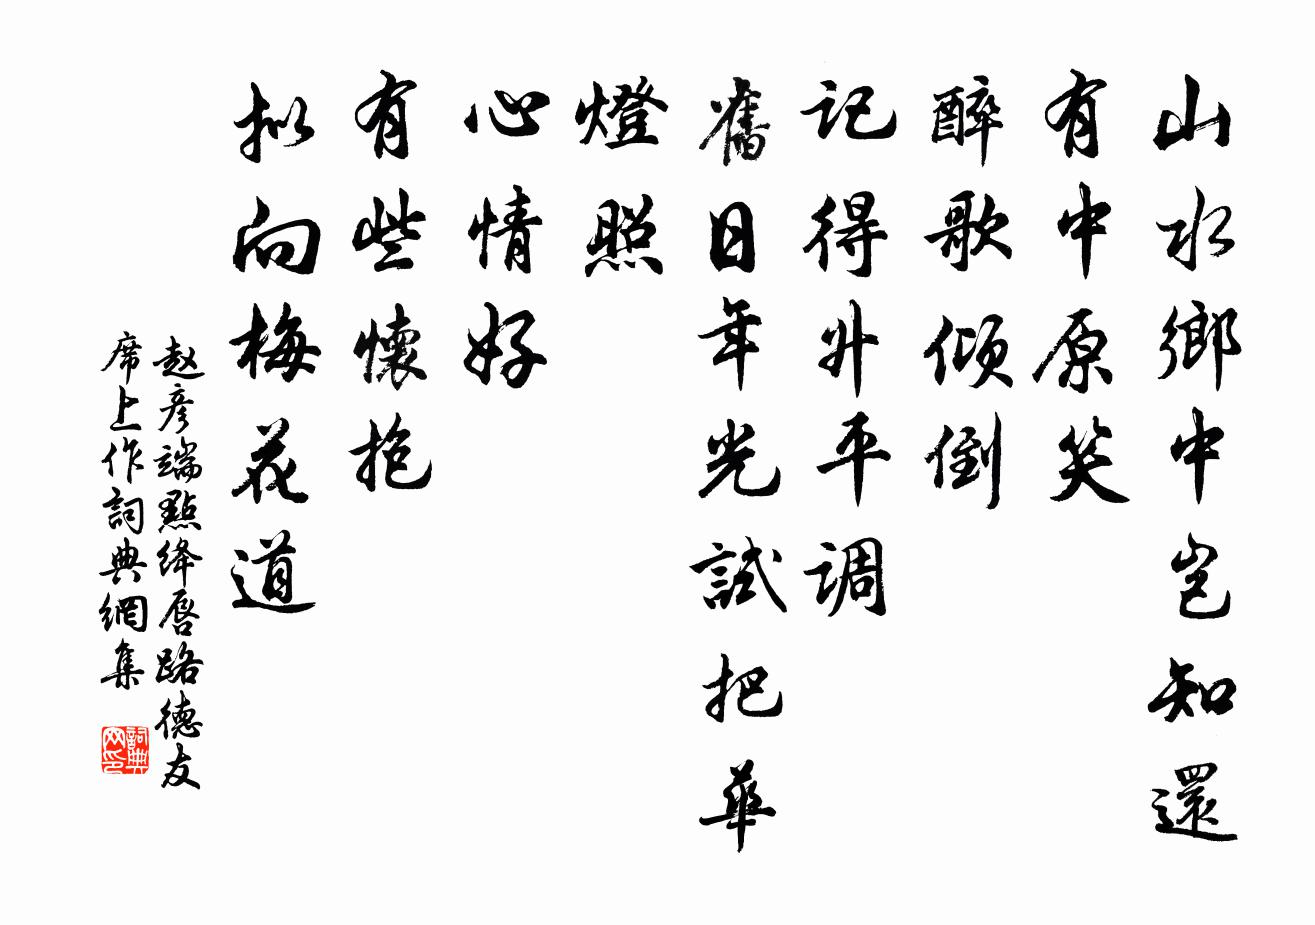 山水鄉中豈知還
有中原笑
醉歌傾倒
记得升平调
舊日年光試把華
燈照
心情好
有些懷抱
拟向梅花道
赵彦端點绛唇路德友
席上作詞典網集
詞典网印